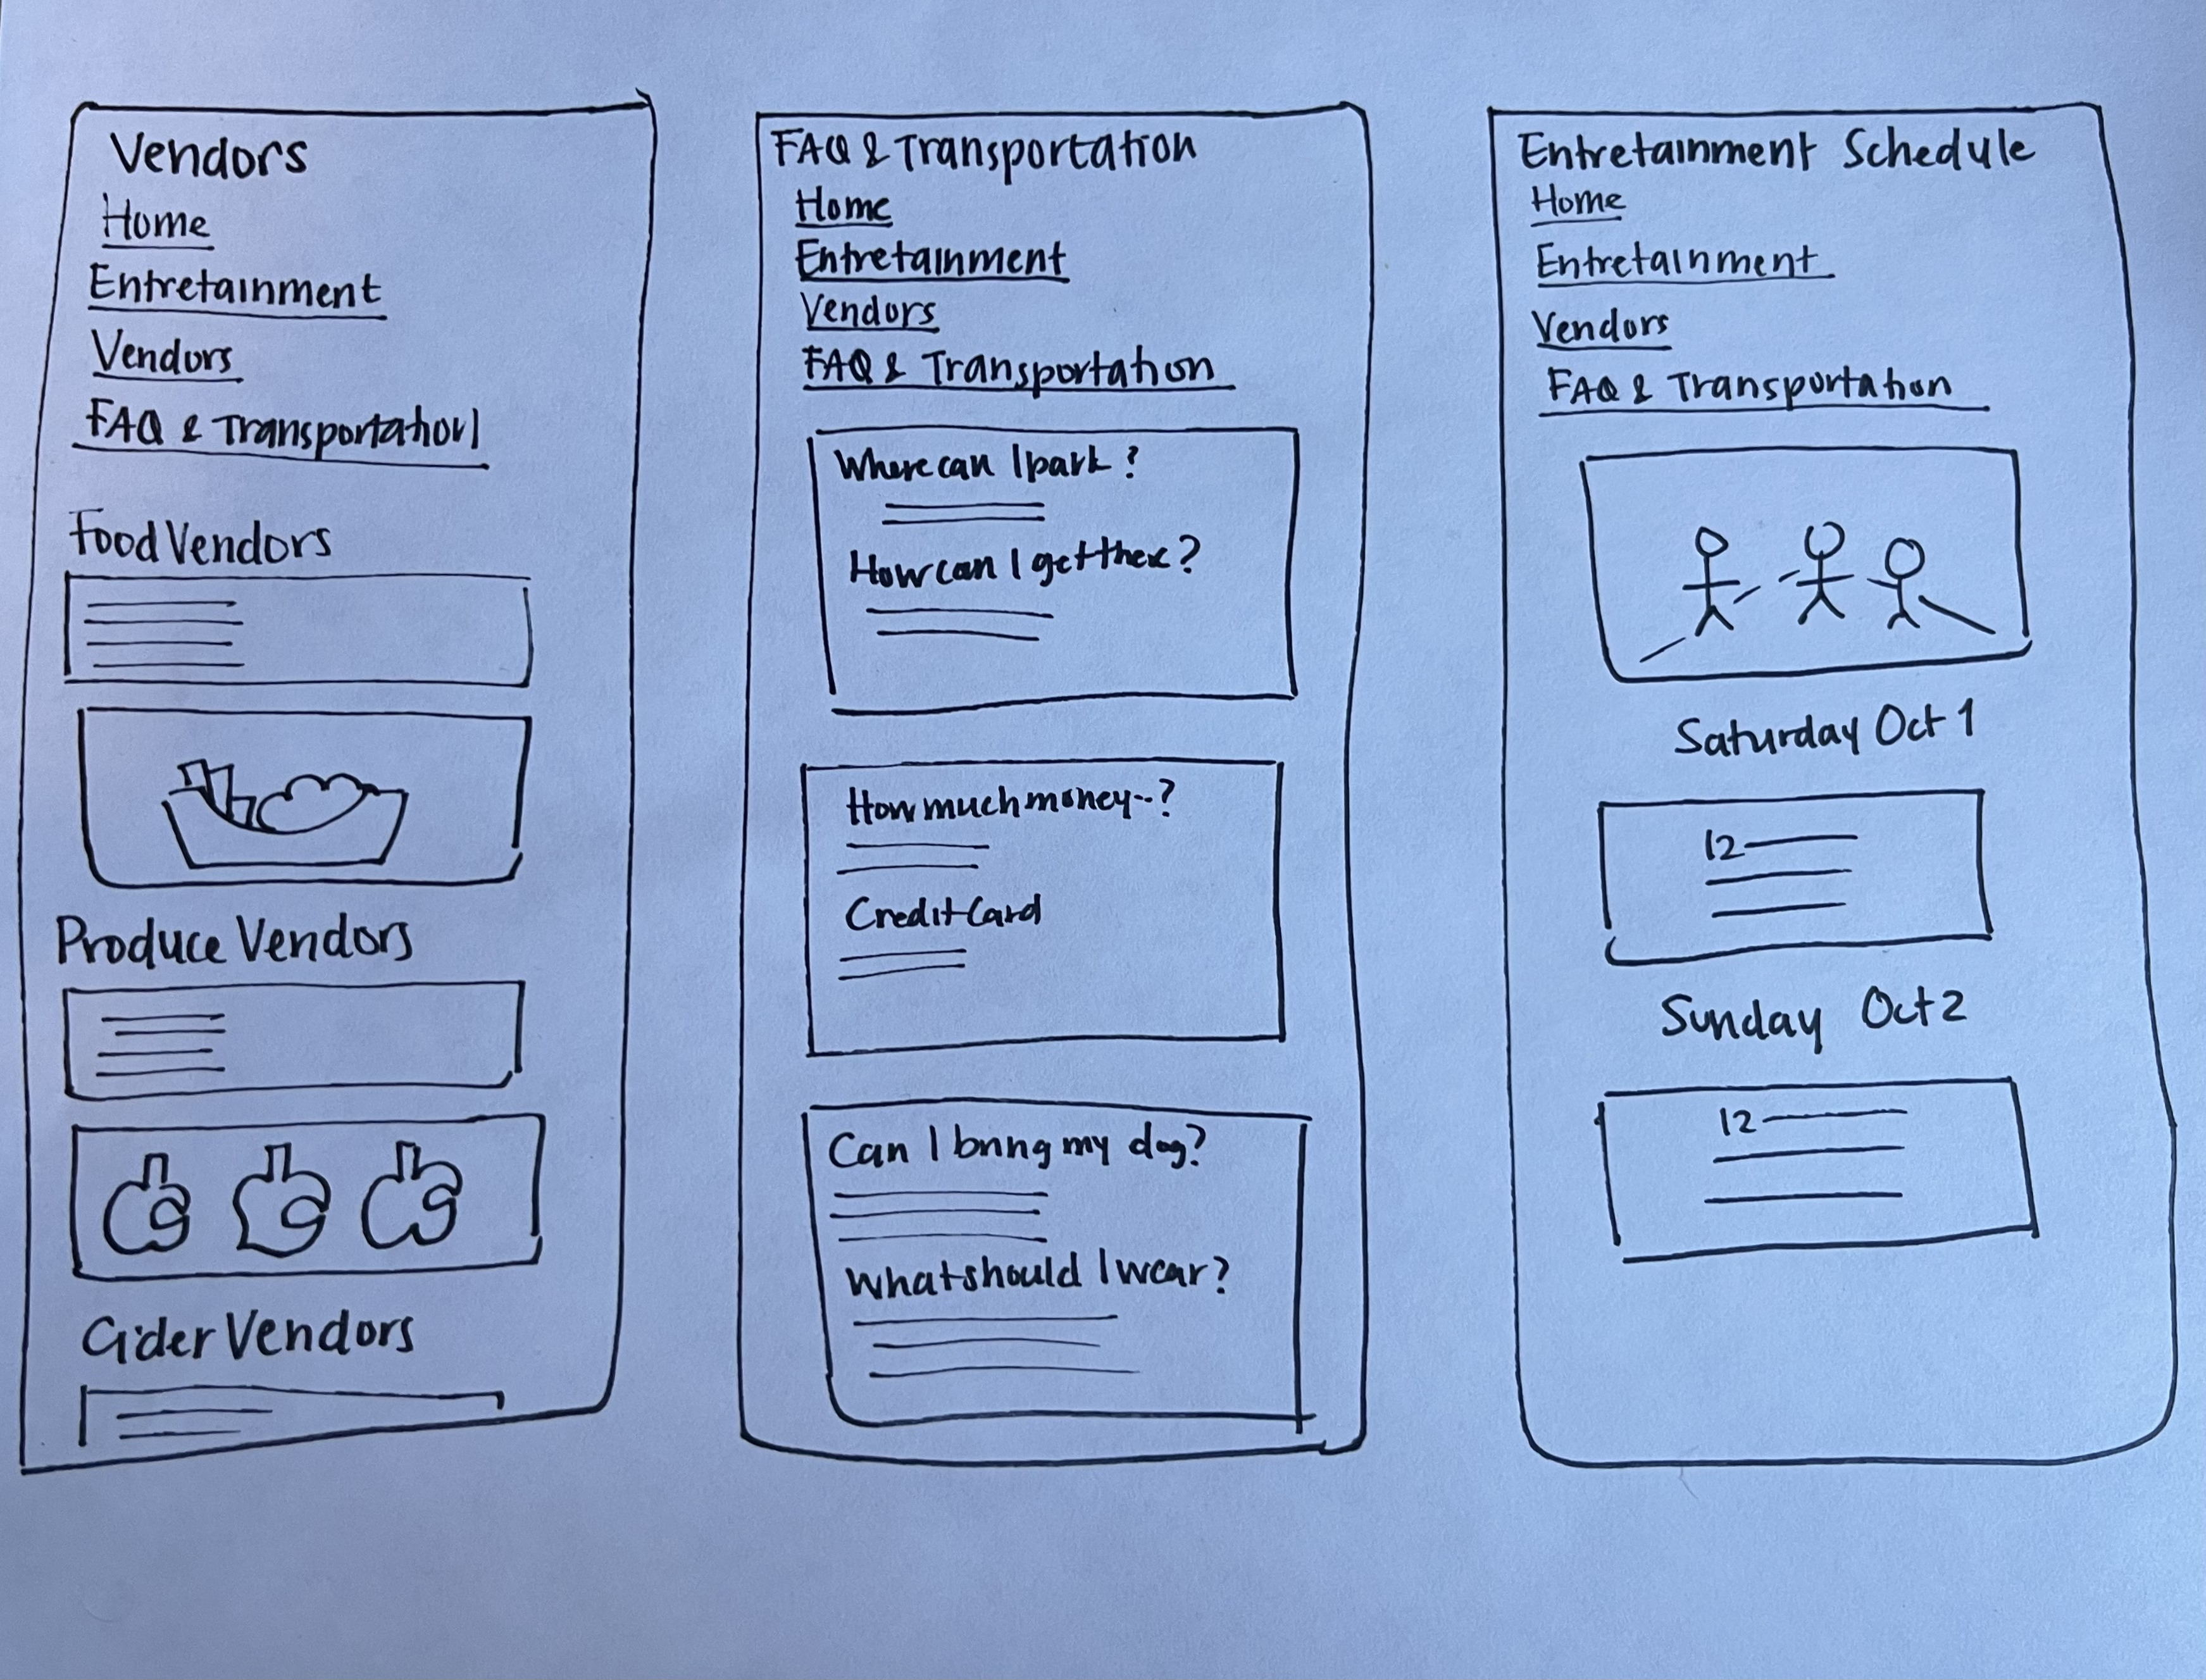 Vendors
Home
Entretainment
Vendors
FAQ & Transportation
Food Vendors
Produce Vendors
Cider Vendors
FAQ & Transportation
Home
Entretainment
Vendors
FAQ & Transportation
Where can I park?
How can I get there?
How much money--?
Credit Card
Can I bring my dog?
What should I wear?
Entretainment Schedule
Home
Entretainment
Vendors
FAQ & Transportation
Saturday Oct 1
12
Sunday Oct 2
12